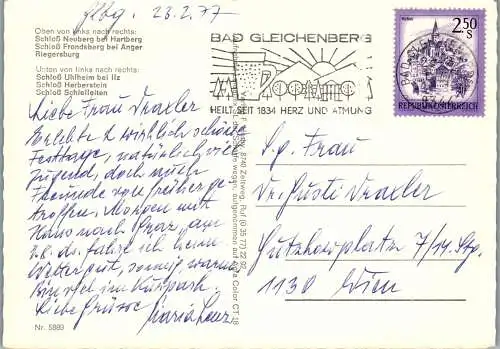 Glbg. 23.2.77
Oben von links nach rechts:
Schloß Neuberg bei Hartberg
Schloß Frondsberg bei Anger
Riegersburg
Unten von links nach rechts:
Schloß Uhlheim bei Ilz
Schloß Herberstein
Schloß Schielleiten
BAD GLEICHENBERG
HEILT SEIT 1834 HERZ UND ATMUNG
2.50 S
REPUBLIK ÖSTERREICH
Liebe Frau Draxler
Erlebte wirklich schöne
Festtage, natürlich viel
Jugend, doch auch
Freunde von früher ge-
troffen. Morgen mit
Hans nach Graz, am
28. ds. fahre ich heim.
Wetter gut, sonnig, warm
Bin viel im Kurpark.
Liebe Grüsse Maria
S.g. Frau
Dr. Gusti Draxler
7/14. Stg.
1130 Wien
8740 Zeltweg, Ruf (0 35 77) 22 92
aufgenommen auf Agfa Color CT 18
Nr. 5893